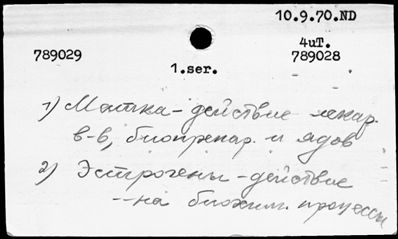 10.9.70.ND
4иТ.
789029 789028
1.ser.
1) Матка - действие лекар.
в-в, биопрепар. и ядов
2) Эстрогены - действие
-- на биохим. процессы